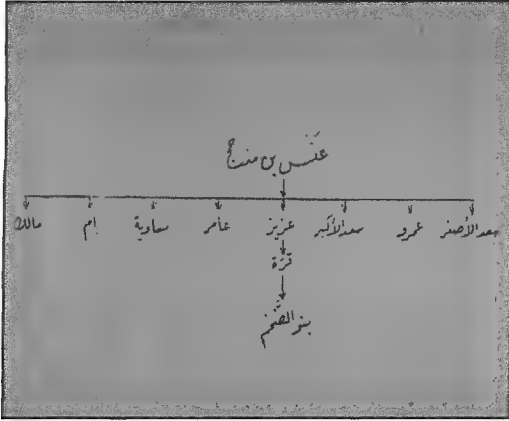 عَنْس بن مذحج
سعد الأصغر عمرو سعد الأكبر عزيز عامر معاوية إم مالك
قرّة
بنو الضّخم